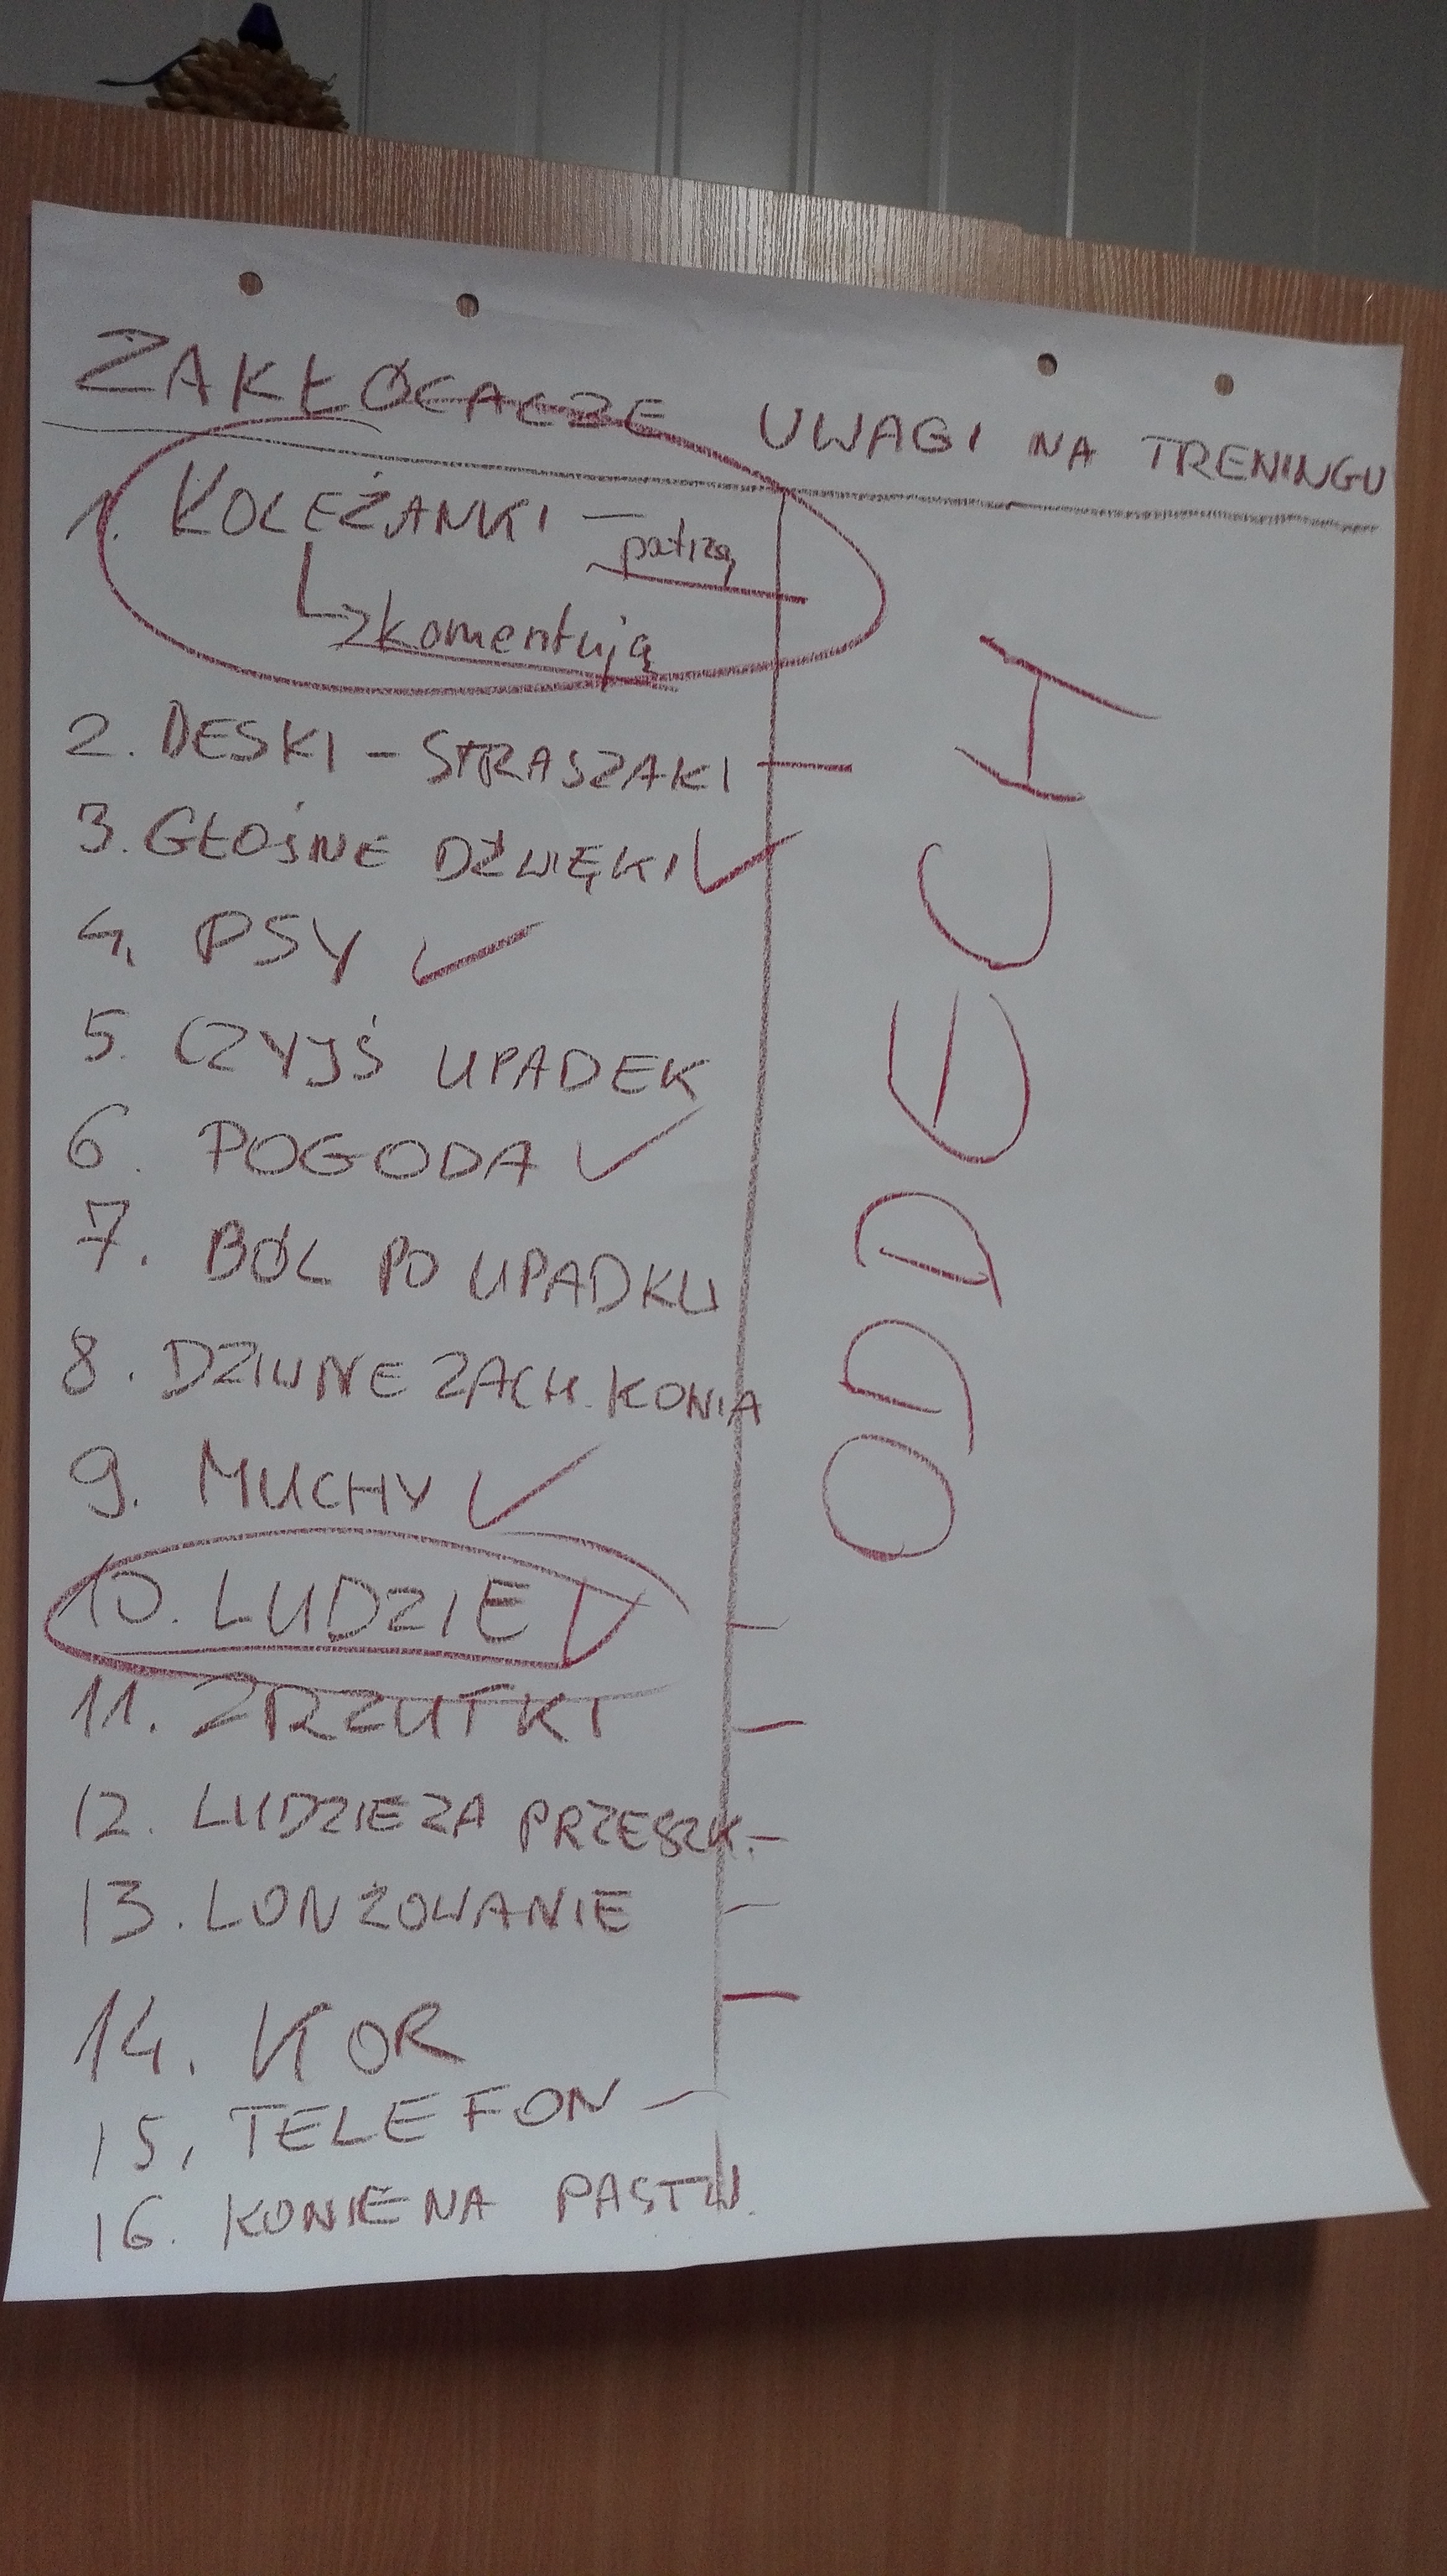 ZAKŁÓCACZE UWAGI NA TRENINGU
1. KOLEŻANKI — patrzą
komentują
2. DESKI - STRASZAKI
3. GŁOŚNE DŹWIĘKI
4. PSY
5. CZYJŚ UPADEK
6. POGODA
7. BÓL PO UPADKU
8. DZIWNE ZACH. KONIA
9. MUCHY
10. LUDZIE
11. ZRZUTKI
12. LUDZIE ZA PRZESZK.
13. LONŻOWANIE
14. KOR
15. TELEFON
16. KONIE NA PASTW.
ODDECH